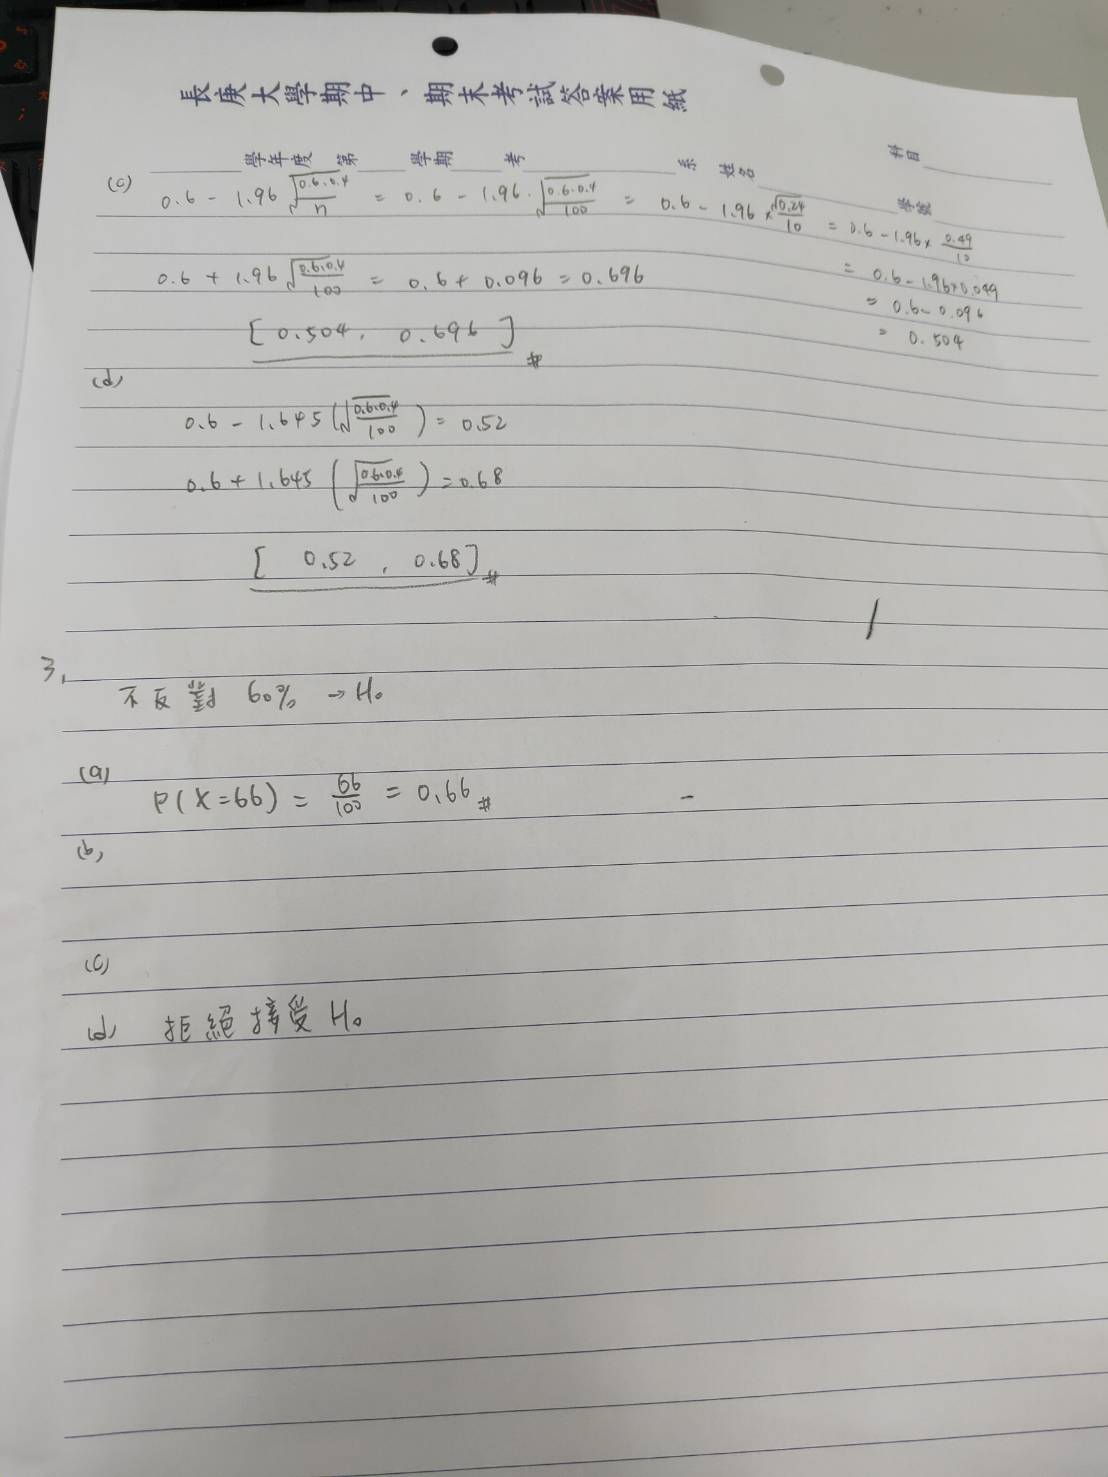 長庚大學期中、期末考試答案用紙
學年度 第 學期 考 系 姓名 學號 科目
(c) 0.6 - 1.96 √(0.6·0.4)/n = 0.6 - 1.96 · √(0.6·0.4)/100 = 0.6 - 1.96 × √0.24/10 = 0.6 - 1.96 × 0.49/10
= 0.6 - 1.96×0.049
= 0.6 - 0.096
= 0.504
0.6 + 1.96 √(0.6·0.4)/100 = 0.6 + 0.096 = 0.696
[ 0.504, 0.696 ] #
(d)
0.6 - 1.645 (√(0.6·0.4)/100) = 0.52
0.6 + 1.645 (√(0.6·0.4)/100) = 0.68
[ 0.52 , 0.68 ] #
3.
不反對 60% → H₀
(a)
P(X=66) = 66/100 = 0.66 #
(b)
(c)
(d) 拒絕接受 H₀